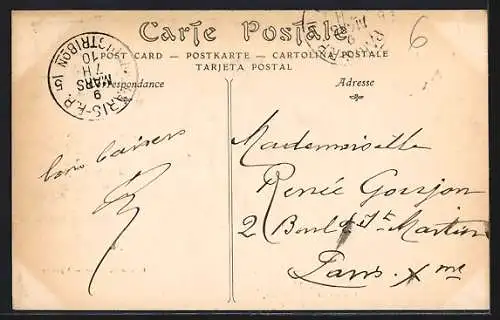 6
Carte Postale
POST CARD — POSTKARTE — CARTOLINA POSTALE
TARJETA POSTAL
Correspondance
Adresse
PARIS-R.P.
DISTRIBON
9
MARS
7 H
10
bons baisers
Mademoiselle
Renée Goujon
2 Boul.d St-Martin
Paris. Xme